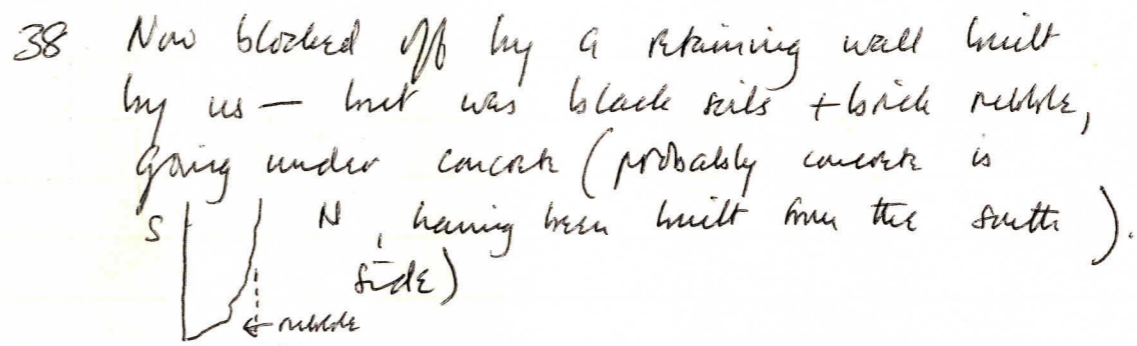 38 Now blocked off by a retaining wall built
by us — but was black soils + brick rubble,
going under concrete (probably concrete is
S N , having been built from the south ).
side)
← rubble